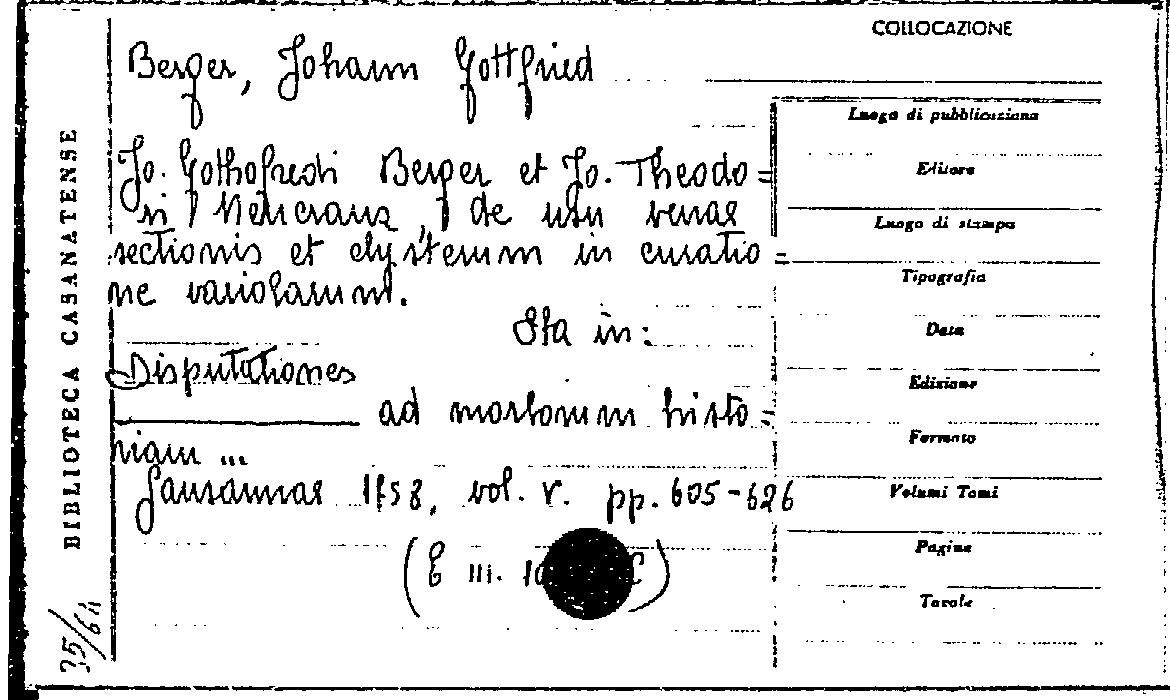 COLLOCAZIONE
Berger, Johann Gottfried
Jo. Gothofredi Berger et Jo. Theodo=
ri de usu venae
sectionis et clysterum in curatio=
ne variolarum.
Sta in:
Disputationes
ad morborum histo=
riam ...
Lausannae 1758, vol. V. pp. 605-626
(E III.
BIBLIOTECA CASANATENSE
Luogo di pubblicazione
Editore
Luogo di stampa
Tipografia
Data
Edizione
Formato
Volumi Tomi
Pagine
Tavole